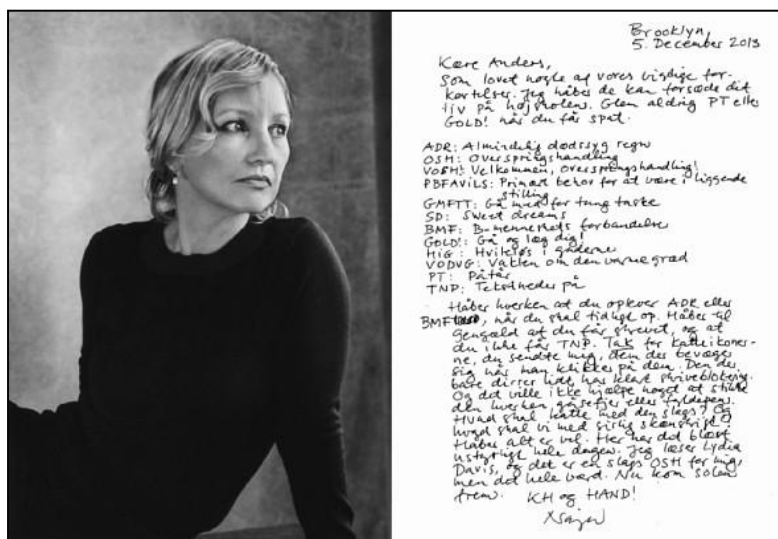 Brooklyn,
5. December 2013
Kære Anders,
Som lovet nogle af vores vigtige for-
kortelser. Jeg håber de kan forsøde dit
liv på højskolen. Glem aldrig PT eller
GOLD! når du får spat.
ADR: Almindelig dødssyg regn
OSH: Overspringshandling
VOSH!: Velkommen, overspringshandling!
PBFAViLS: Primært behov for at være i liggende
stilling
GMFTT: Gå med for tung taske
SD: Sweet dreams
BMF: B-menneskets forbandelse
GOLD!: Gå og læg dig!
HiG: Hvileløs i gaderne
VODVG: Vatten om den varme grød
PT: Påtår
TNP: Tekstnedes på
Håber hverken at du oplever ADR eller
BMF, når du skal tidligt op. Håber til
gengæld at du får skrevet, og at
du ikke får TNP. Tak for katteikoner-
ne, du sendte mig, dem der bevæger
sig når man klikker på dem. Den der
bare dirrer lidt har klart skriveblokering.
Og det ville ikke hjælpe noget at stikke
den hverken gåsefjer eller fyldepen.
Hvad skal katte med den slags? Og
hvad skal vi med sirlig skønskrift?
Håber alt er vel. Her har det blæst
ustyrligt hele dagen. Jeg læser Lydia
Davis, og det er en slags OSH for mig,
men det hele værd. Nu kom solen
frem. KH og HAND!